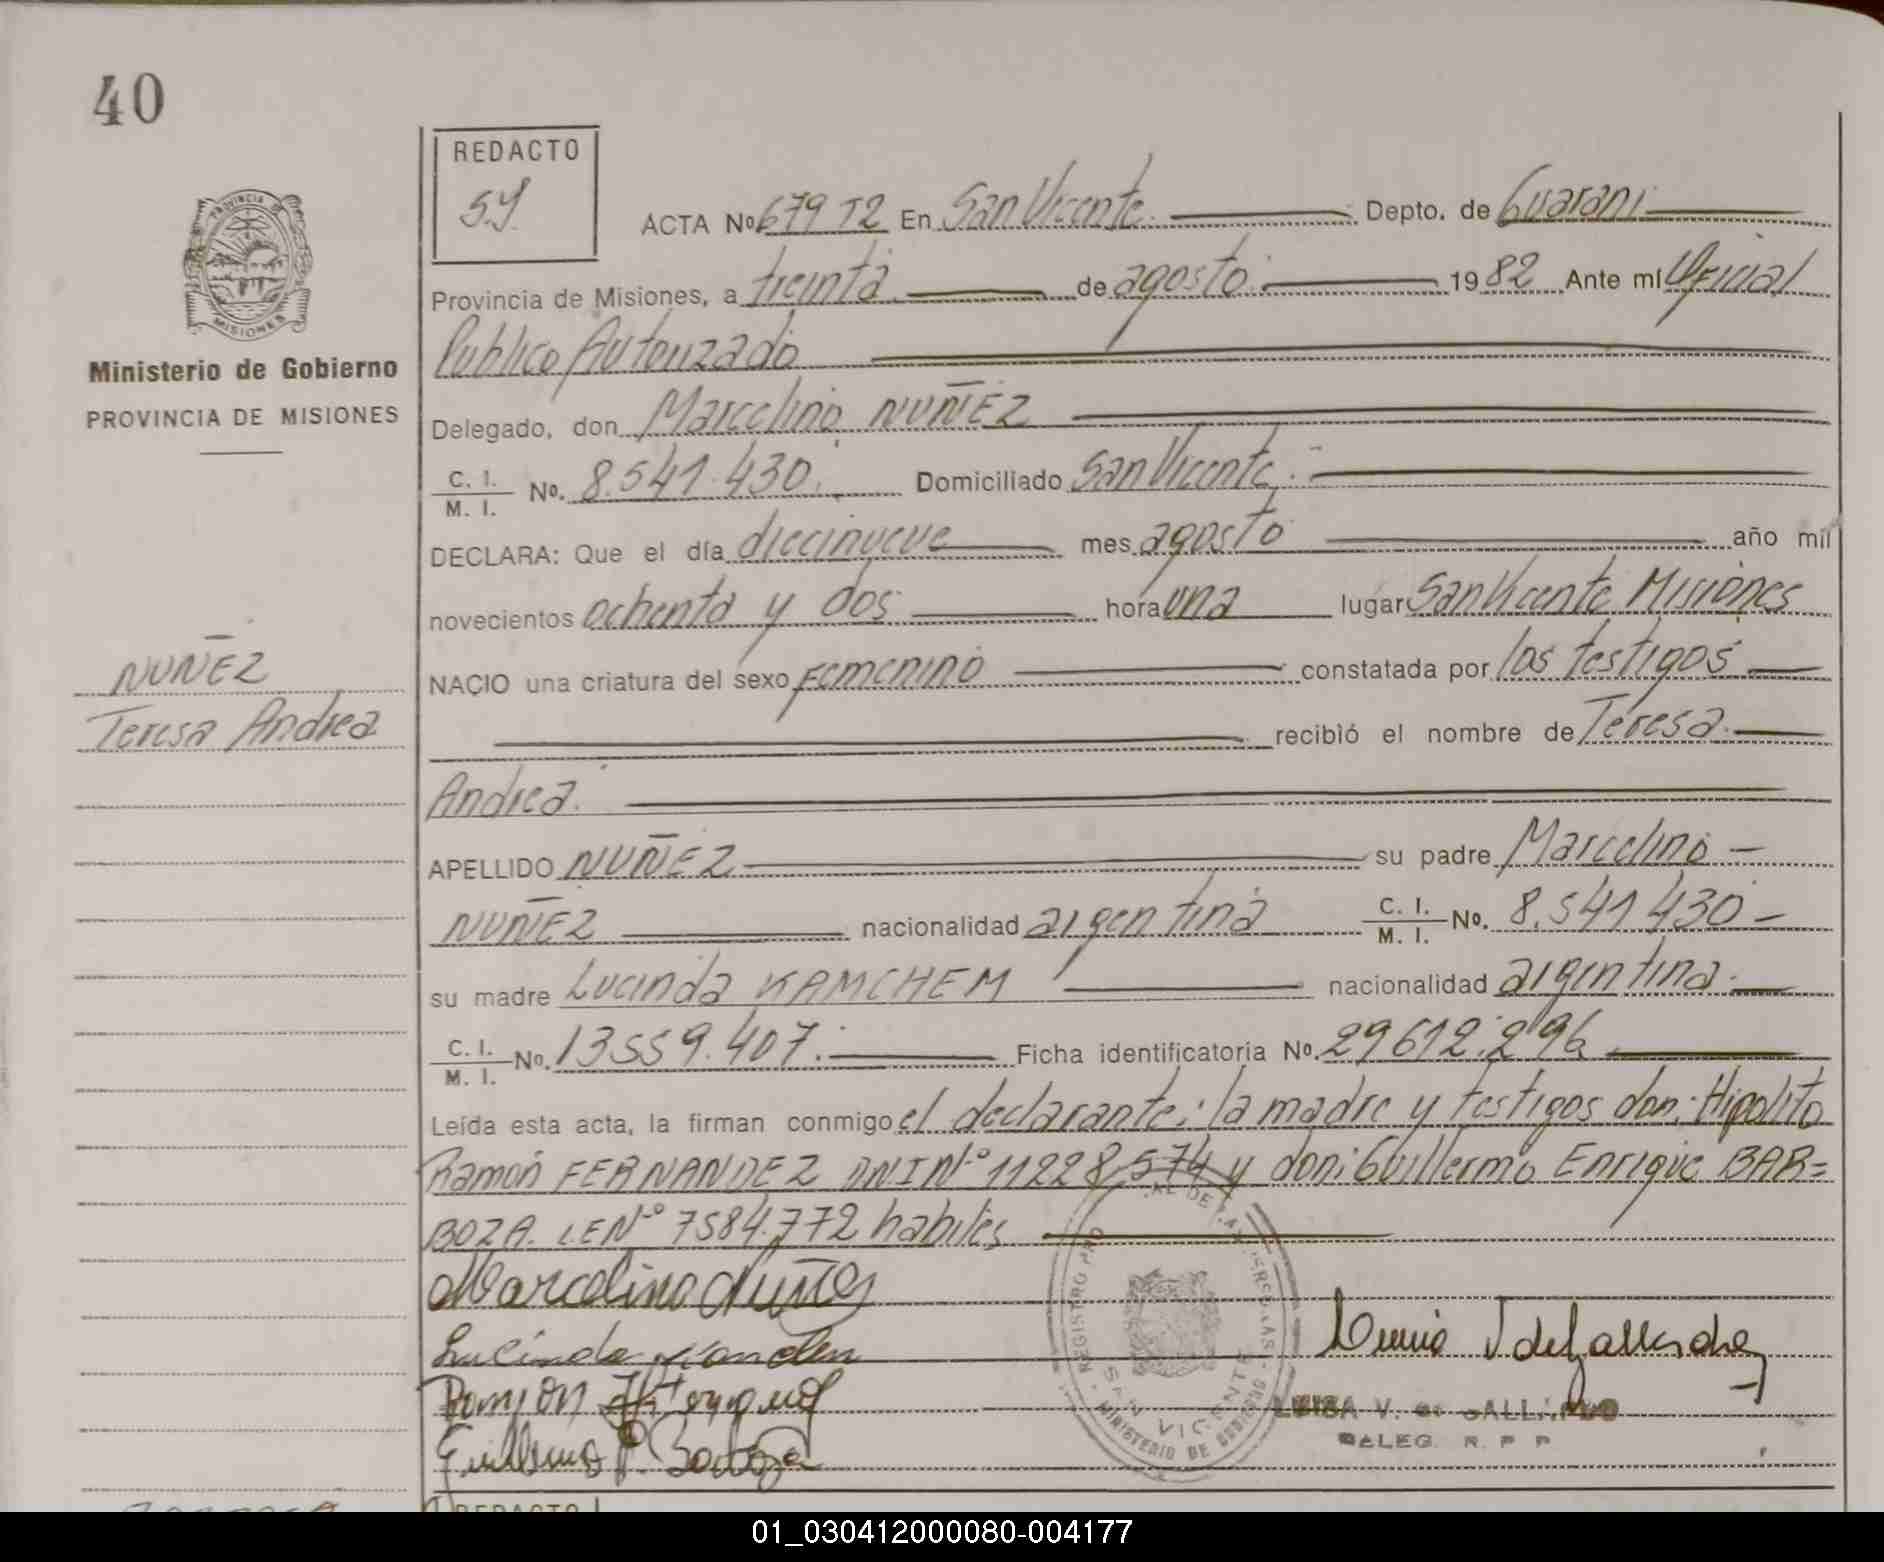 40
REDACTO
S.Y.
ACTA No 679 T2 En San Vicente. Depto. de Guarani
Provincia de Misiones, a treinta de agosto. 1982 Ante mí Oficial
Publico Autorizado
Delegado, don Marcelino NUÑEZ
C. I. / M. I. No. 8.541.430. Domiciliado San Vicente.
DECLARA: Que el día diecinueve mes agosto año mil
novecientos ochenta y dos hora una lugar San Vicente Misiones
NACIO una criatura del sexo femenino constatada por los testigos
recibió el nombre de Teresa.
Andrea.
APELLIDO NUÑEZ su padre Marcelino
NUÑEZ nacionalidad argentina C. I. / M. I. No. 8.541.430
su madre Lucinda KAMCHEM nacionalidad argentina.
C. I. / M. I. No. 13559.407. Ficha identificatoria No. 29612.296
Leída esta acta, la firman conmigo el declarante; la madre y testigos don: Hipolito
Ramón FERNANDEZ DNI Nº 11228,574 y don: Guillermo Enrique BAR=
BOZA. LE Nº 7584.772 habiles
Marcelino Nuñez
Lucinda
Ramon
Guillermo
PROVINCIA DE
MISIONES
Ministerio de Gobierno
PROVINCIA DE MISIONES
NUÑEZ
Teresa Andrea
REGISTRO DE LAS PERSONAS
SAN VICENTE
MINISTERIO DE GOBIERNO
LUISA V. DE GALLARDO
DELEG. R. P. P
REDACTO
01_030412000080-004177